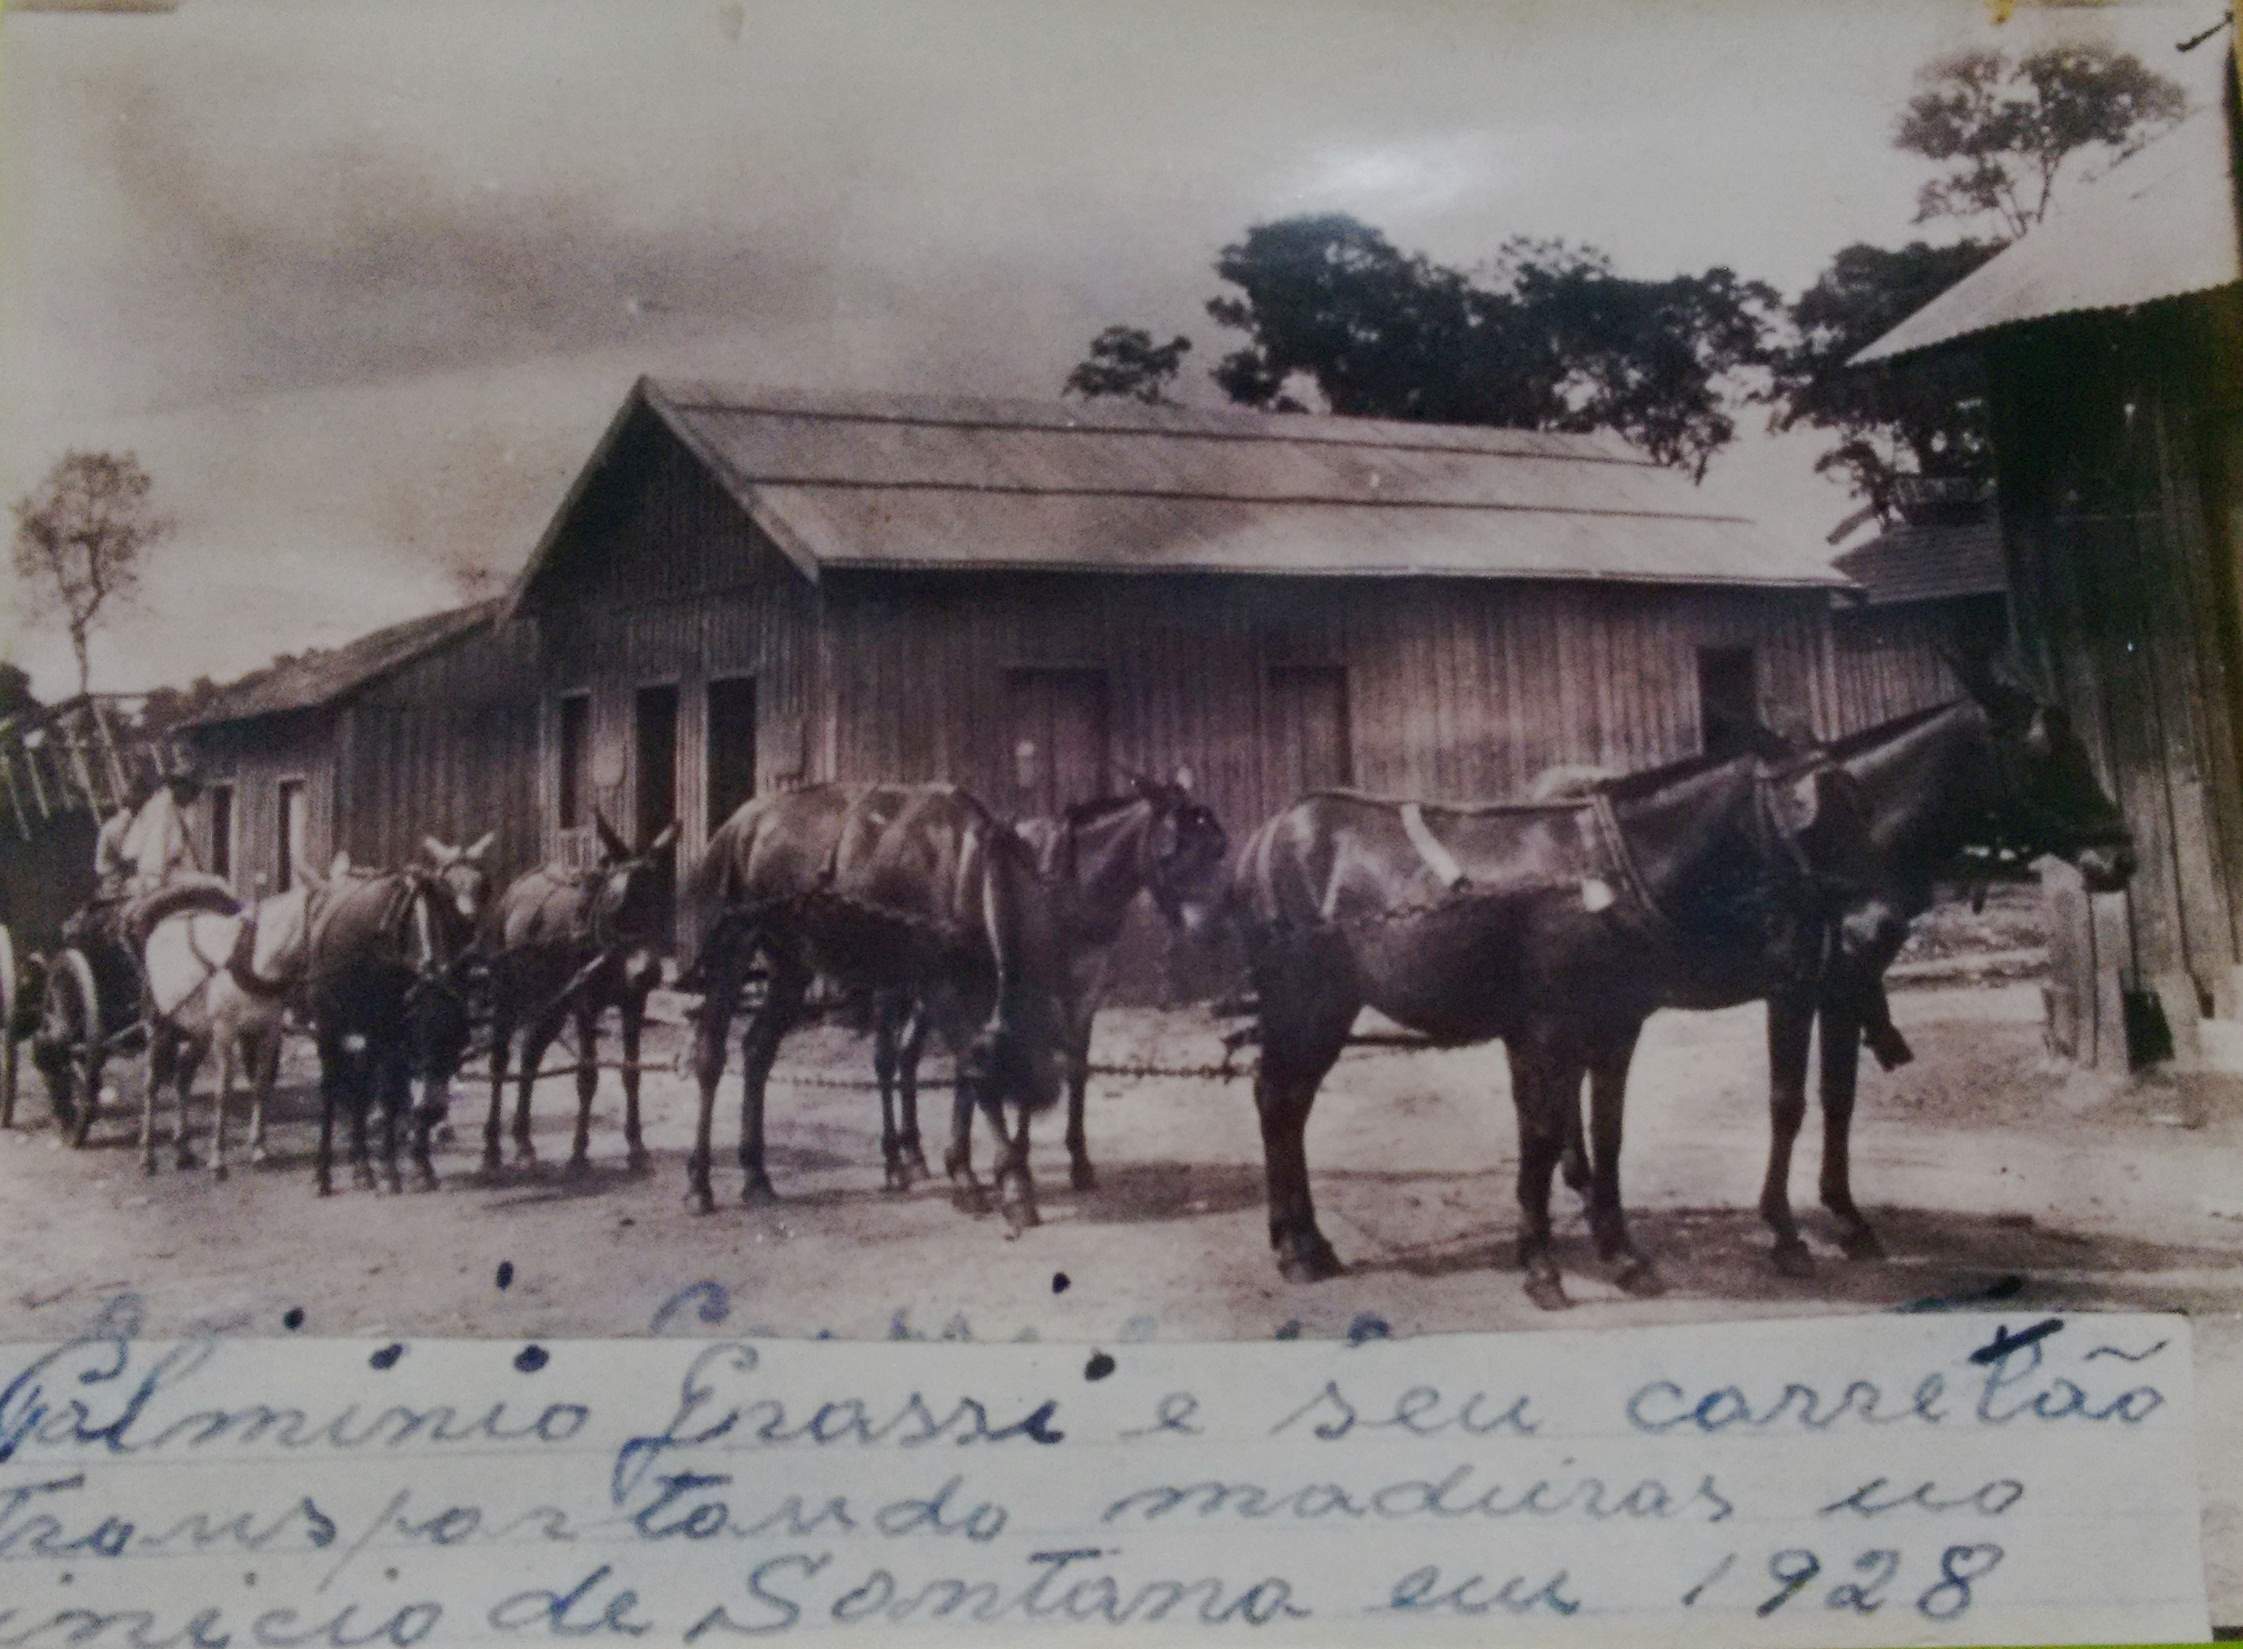 Palminio Grassi e seu carretão
transportando madeiras no
inicio de Santana em 1928